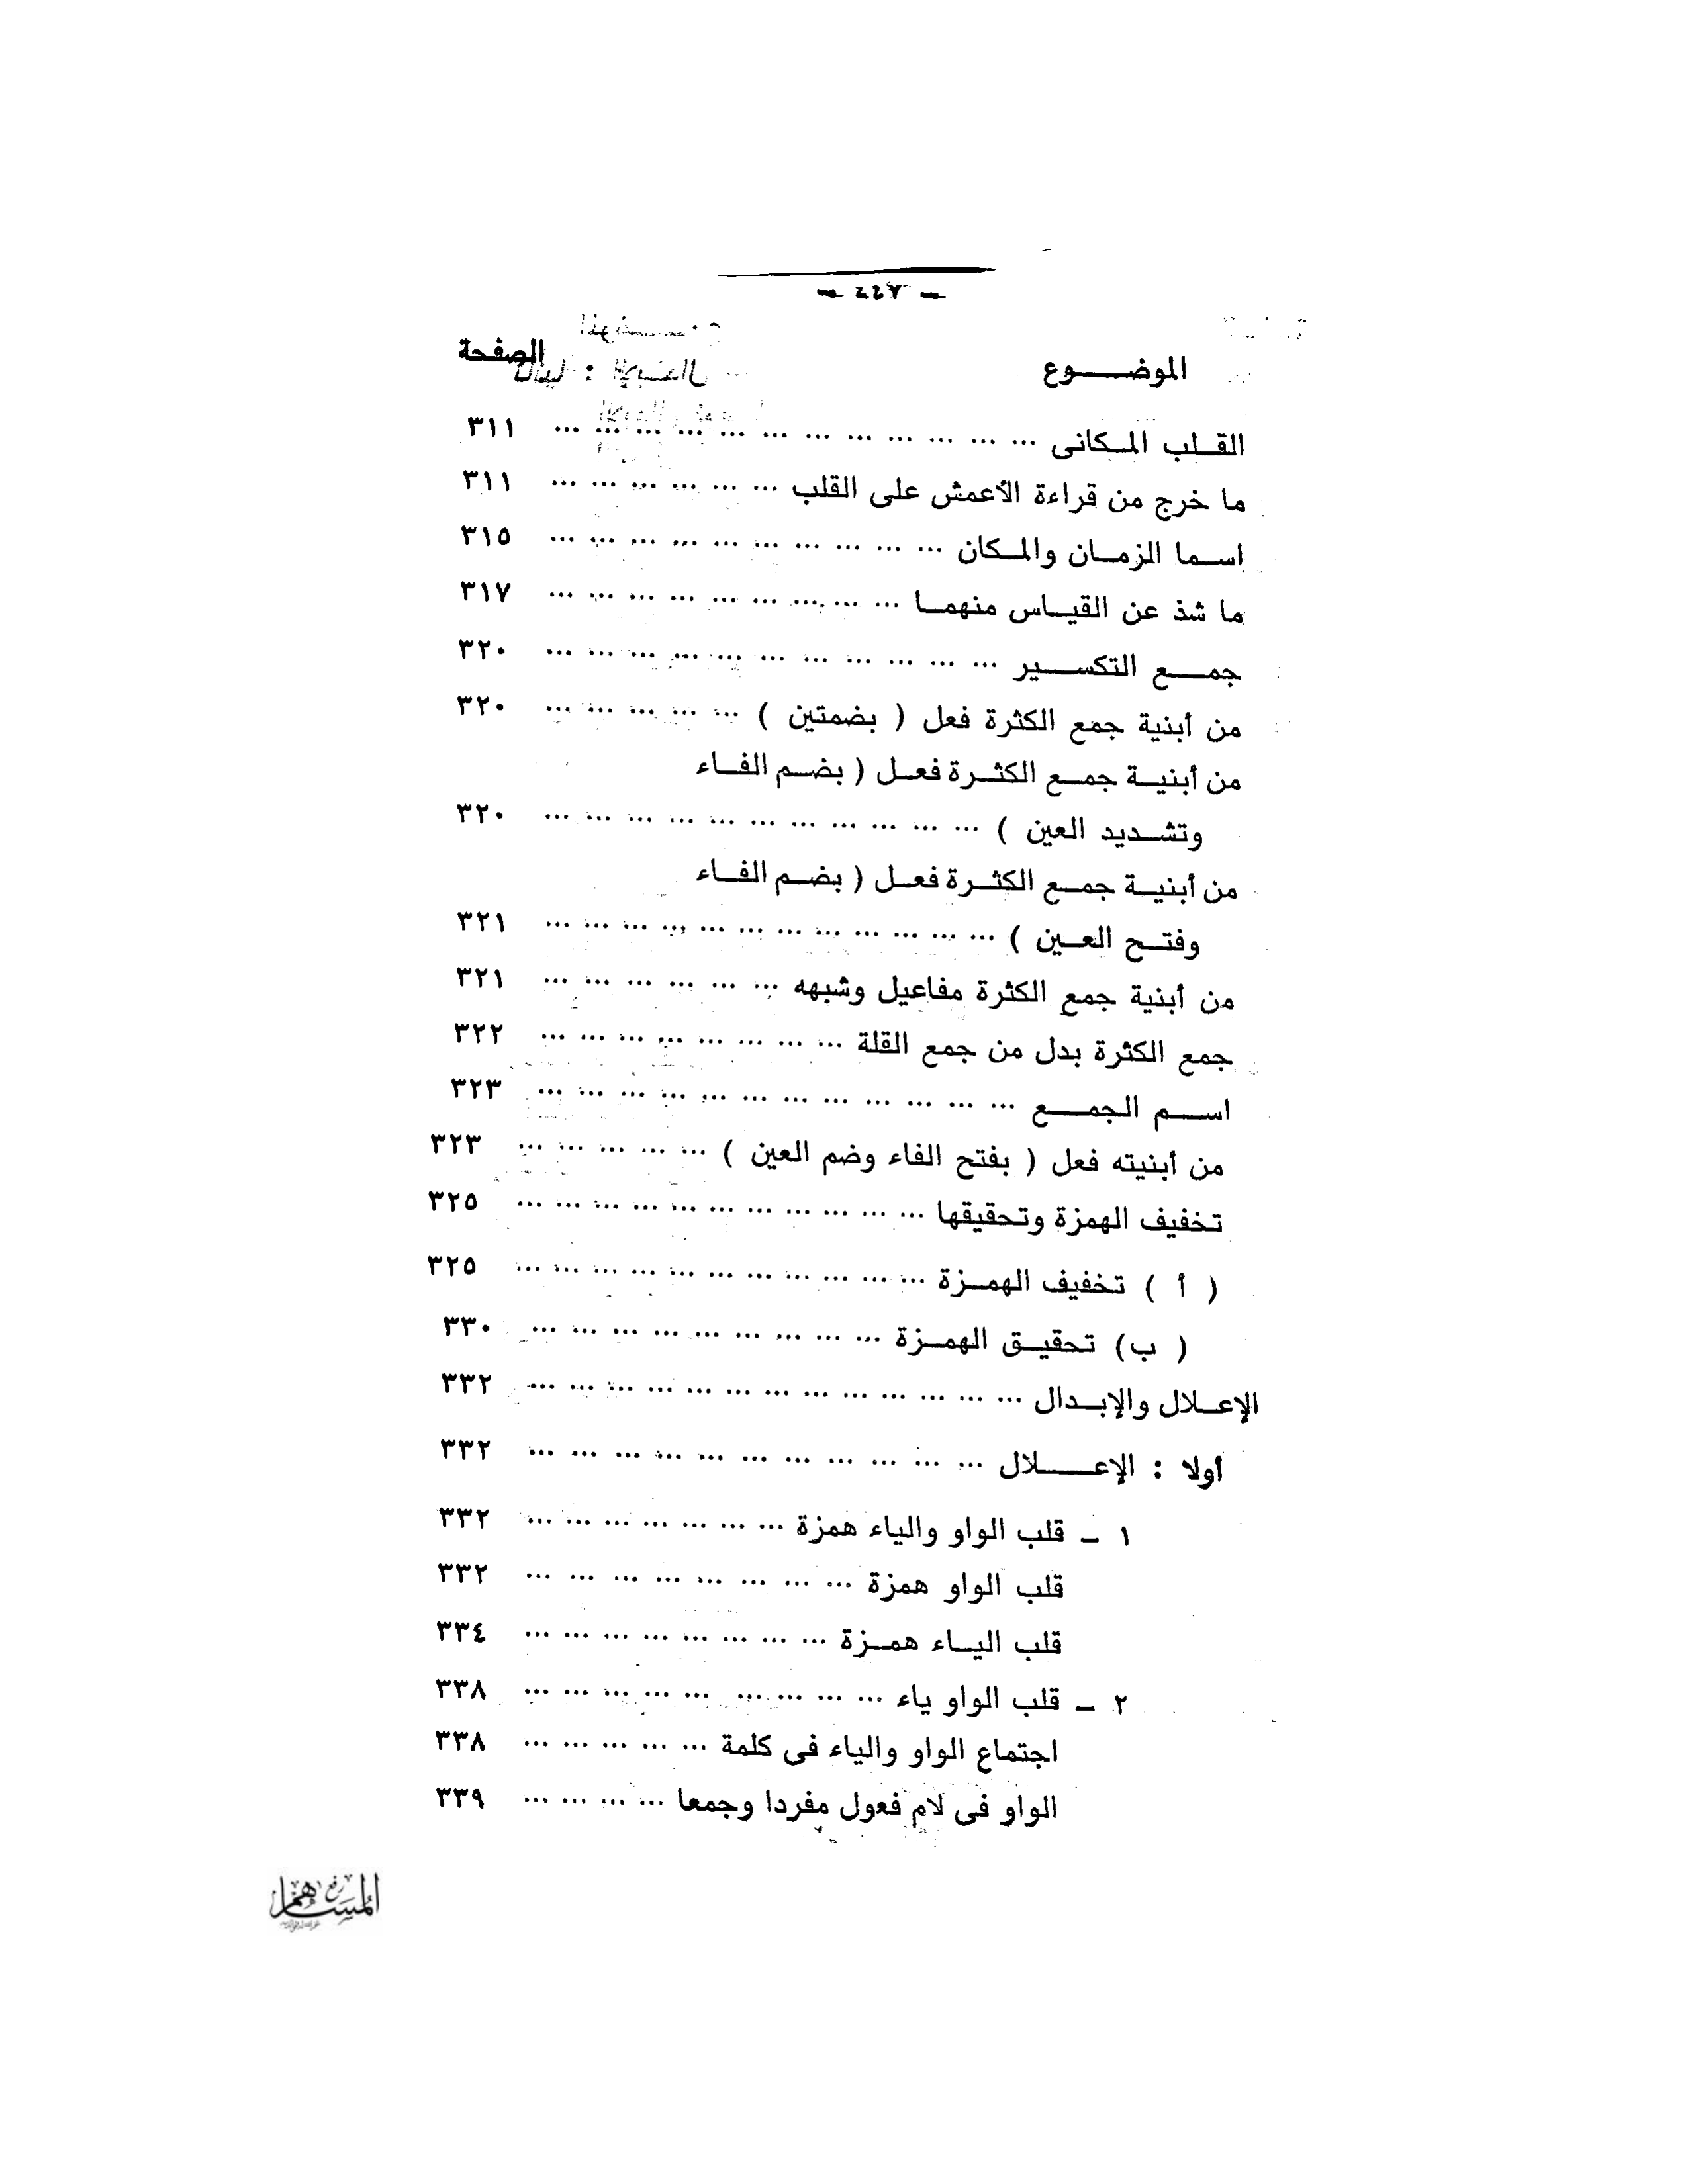 الموضــــوع الصفحة
القــلب المـكانى ... ... ... ... ... ... ... ... ... ... ... ... ٣١١
ما خرج من قراءة الأعمش على القلب ... ... ... ... ... ... ٣١١
اســما الزمــان والمـكان ... ... ... ... ... ... ... ... ... ... ٣١٥
ما شذ عن القيــاس منهمــا ... ... ... ... ... ... ... ... ... ٣١٧
جمــــع التكســــير ... ... ... ... ... ... ... ... ... ... ... ٣٢٠
من أبنية جمع الكثرة فعل ( بضمتين ) ... ... ... ... ... ٣٢٠
من أبنيــة جمــع الكثــرة فعــل ( بضــم الفــاء
وتشــديد العين ) ... ... ... ... ... ... ... ... ... ... ... ٣٢٠
من أبنيــة جمــع الكثــرة فعــل ( بضــم الفــاء
وفتــح العــين ) ... ... ... ... ... ... ... ... ... ... ... ... ٣٢١
من أبنية جمع الكثرة مفاعيل وشبهه ... ... ... ... ... ... ٣٢١
جمع الكثرة بدل من جمع القلة ... ... ... ... ... ... ... ... ٣٢٢
اســــم الجمــــع ... ... ... ... ... ... ... ... ... ... ... ... ٣٢٣
من أبنيته فعل ( بفتح الفاء وضم العين ) ... ... ... ... ... ٣٢٣
تخفيف الهمزة وتحقيقها ... ... ... ... ... ... ... ... ... ... ... ٣٢٥
( أ ) تخفيف الهمــزة ... ... ... ... ... ... ... ... ... ... ... ٣٢٥
( ب ) تحقيــق الهمــزة ... ... ... ... ... ... ... ... ... ٣٣٠
الإعــلال والإبــدال ... ... ... ... ... ... ... ... ... ... ... ... ... ٣٣٢
أولا : الإعـــــلال ... ... ... ... ... ... ... ... ... ... ... ٣٣٢
١ ــ قلب الواو والياء همزة ... ... ... ... ... ... ... ٣٣٢
قلب الواو همزة ... ... ... ... ... ... ... ... ٣٣٢
قلب اليــاء همــزة ... ... ... ... ... ... ... ... ٣٣٤
٢ ــ قلب الواو ياء ... ... ... ... ... ... ... ... ... ٣٣٨
اجتماع الواو والياء فى كلمة ... ... ... ... ... ٣٣٨
الواو فى لام فعول مفردا وجمعا ... ... ... ... ٣٣٩